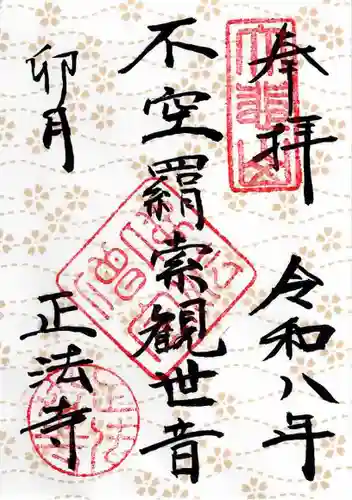 奉拝
令和八年
不空羂索観世音
卯月
正法寺